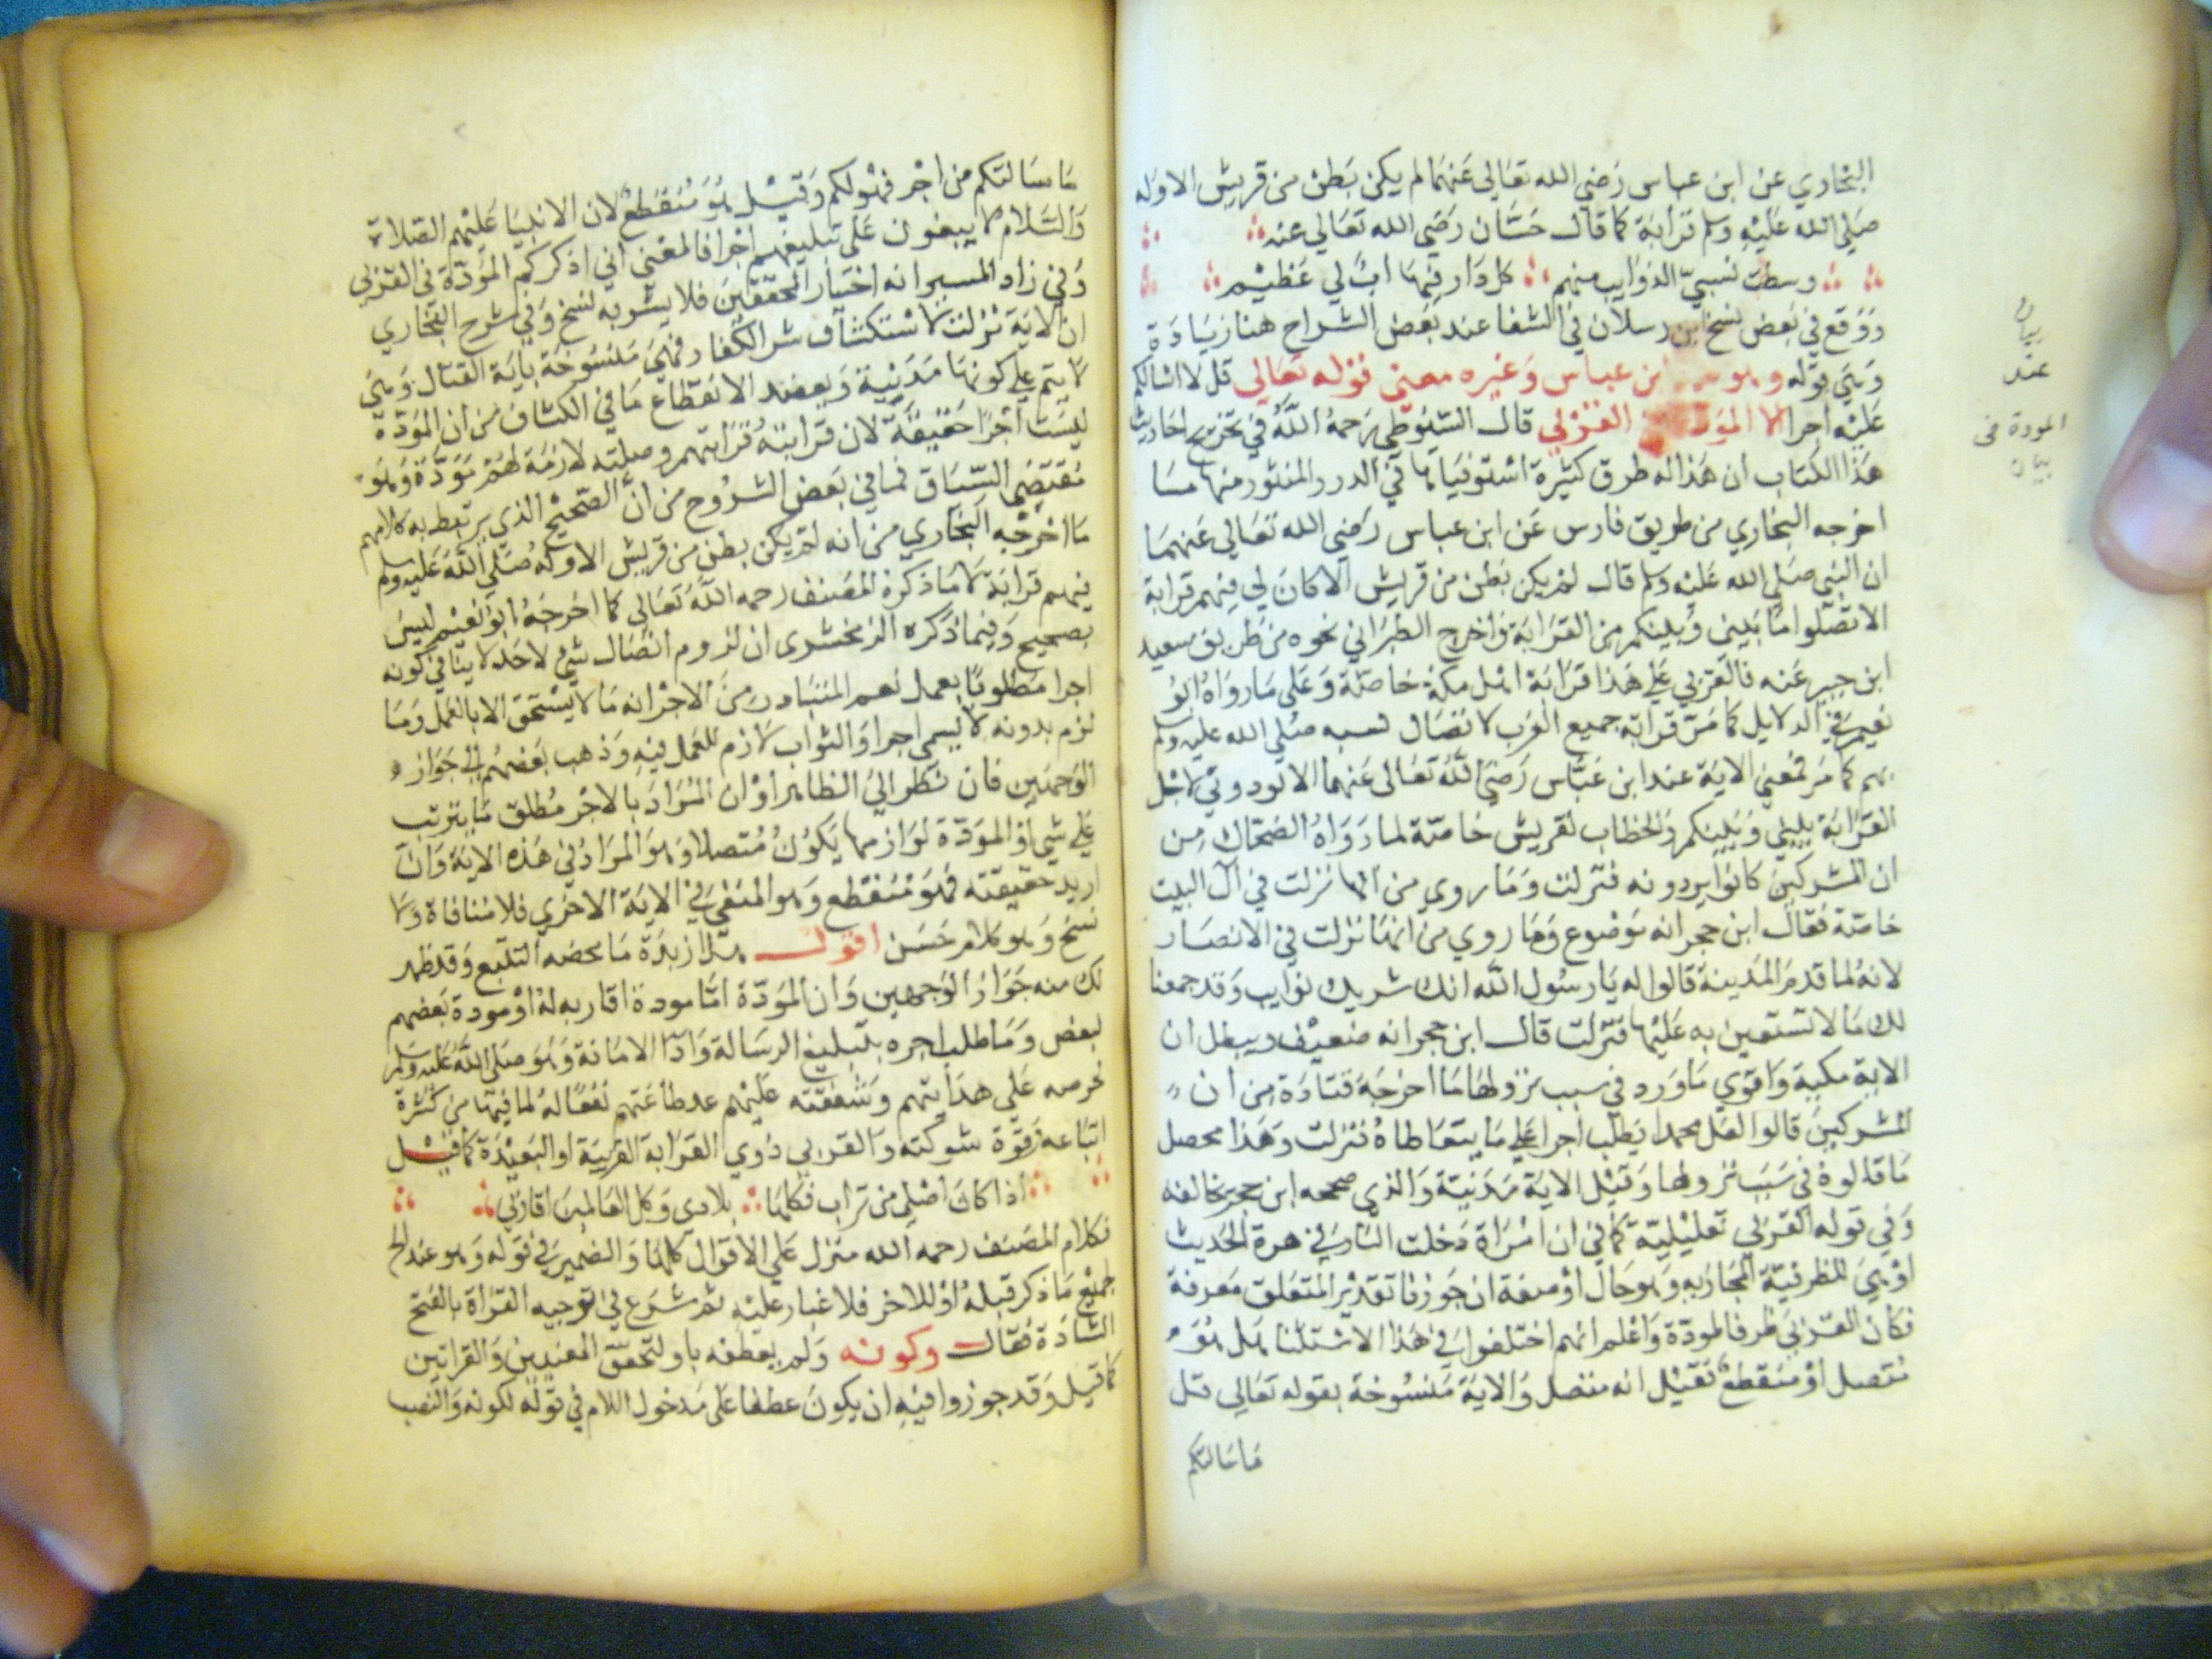 البخاري عن ابن عباس رضي الله تعالى عنهما لم يكن بطن من قريش الا وله
صلى الله عليه وسلم قرابة كما قال حسان رضي الله تعالى عنه
وسطت نسبي الذوايب منهم كل دار فيها اب لي عظيم
ووقع في بعض نسخ ابن رسلان في الشفا عند بعض الشراح هنا زيادة
وهي قوله وهو عند ابن عباس وغيره معنى قوله تعالى قل لا اسالكم
عليه اجرا الا المودة القربي قال السيوطي رحمه الله في تخريج احاديث
هذا الكتاب ان هذا له طرق كثيرة استوفياها في الدرر المنثور منها ما
اخرجه البخاري من طريق فارس عن ابن عباس رضي الله تعالى عنهما
ان النبي صلى الله عليه وسلم قال لم يكن بطن من قريش الا كان لي فيهم قرابة
الا تصلوا ما بيني وبينكم من القرابة واخرج الطبراني نحوه من طريق سعيد
ابن جبير عنه فالقربي على هذا قرابة اهل مكة خاصة وعلى ما رواه ابو
نعيم في الدلايل كما مر قرابة جميع العرب لاتصال نسبه صلى الله عليه وسلم
بهم كما مر فمعنى الاية عند ابن عباس رضي الله تعالى عنهما الا تودوني لاجل
القرابة بيني وبينكم والخطاب لقريش خاصة لما رواه الضحاك من
ان المشركين كانوا يردونه فنزلت وما روي من انها نزلت في آل البيت
خاصة فقال ابن حجر انه موضوع وما روي من انها نزلت في الانصار
لانه لما قدم المدينة قالوا له يا رسول الله انك شريك نوايب وقد جمعنا
لك ما لا تستعين به عليها فنزلت قال ابن حجر انه ضعيف ويبطل ان
الاية مكية واقوي ما ورد في سبب نزولها ما اخرجه قتادة من ان
المشركين قالوا لعل محمدا يطلب اجرا على ما يتعاطاه فنزلت وهذا محصل
ما قالوه في سبب نزولها وقيل الاية مدنية والذي صححه ابن حجر يخالفه
وفي قوله القربي تعليلية كما في ان امراة دخلت النار في هرة الحديث
او هي للظرفية المجازية وهو حال او صفة ان جوزنا تقدير المتعلق معرفة
فكان القربي ظرفا للمودة واعلم انهم اختلفوا في هذا الاستثنا هل هو
متصل او منقطع فقيل انه متصل والاية منسوخة بقوله تعالى قل
ما سالتكم
بيان
عند
المودة في
بيان
ما سالتكم من اجر فهو لكم وقيل هو منقطع لان الانبيا عليهم الصلاة
والسلام لا يبغون على تبليغهم اجرا فالمعنى اني اذكركم المودة في القربي
وفي زاد المسير انه اختيار المحققين فلا يشوبه نسخ وفي شرح البخاري
ان الاية نزلت لاستكشاف شر الكفار فهي منسوخة باية القتال وهي
لا يتم على كونها مدنية ويعضد الانقطاع ما في الكشاف من ان المودة
ليست اجرا حقيقة لان قرابته قرابتهم وصلته لازمة لهم مودة وهو
مقتضى السياق فما في بعض الشروح من ان الصحيح الذي يرتبط به كلامهم
ما اخرجه البخاري من انه لم يكن بطن من قريش الا وله صلى الله عليه وسلم
فيهم قرابة لا ما ذكره المصنف رحمه الله تعالى كما اخرجه ابو نعيم ليس
بصحيح وفيما ذكره الزمخشري ان لزوم اتصال شي لاحد لا ينافي كونه
اجرا مطلوبا بعمل نعم المتبادر من الاجر انه ما لا يستحق الا بالعمل وما
لزم بدونه لا يسمى اجرا والثواب لازم للعمل فيه وذهب بعضهم الى جواز
الوجهين فان نظر الى الظاهر او ان المراد بالاجر مطلق ما يترتب
على شي او المودة لوازمها يكون متصلا وهو المراد في هذه الاية وان
اريد حقيقته فهو منقطع وهو المنفي في الاية الاخري فلا منافاة ولا
نسخ وهو كلام حسن اقول هذا زبدة ما محضه التتبع وقد ظهر
لك منه جواز الوجهين وان المودة اما مودة اقاربه له او مودة بعضهم
لبعض وما طلب اجره بتبليغ الرسالة وادا الامانة وهو صلى الله عليه وسلم
لحرصه على هدايتهم وشفقته عليهم عد طاعتهم نفعا له لما فيها من كثرة
اتباعه وقوة شوكته والقربي ذوي القرابة القريبة او البعيدة كما قيل
اذا كان اصلي من تراب فكلها بلادي وكل العالمين اقاربي
فكلام المصنف رحمه الله منزل على الاقوال كلها والضمير في قوله وهو عند الخ
جميع ما ذكر قبله او للاخر فلا غبار عليه ثم شرع في توجيه القراة بالفتح
الشاذة فقال وكونه ولم يعطفه باو لتحقق المعنيين والقراتين
كما قيل وقد جوزوا فيه ان يكون عطفا على مدخول اللام في قوله لكونه والنصب